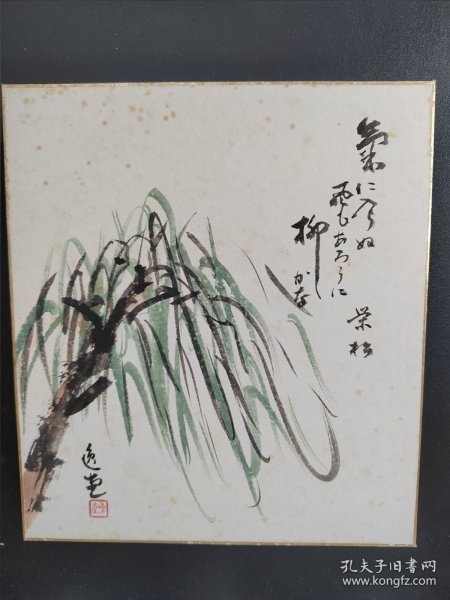 氣に入らぬ
風もあろうに
柳かな
栄松
逸堂
孔夫子旧书网
www.kongfz.com